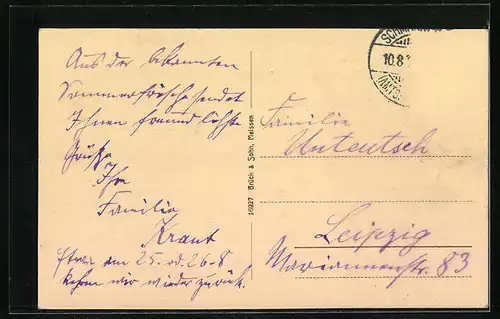 Aus der bekannten
Sommerfrische sendet
Ihnen freundlichste
Grüße
Ihre
Familie
Kraut
Etwa am 25. od. 26-8
kehren wir wieder zurück.
10927 Brück & Sohn, Meissen
10.8.
Familie
Unteutsch
Leipzig
Mariannenstr. 83